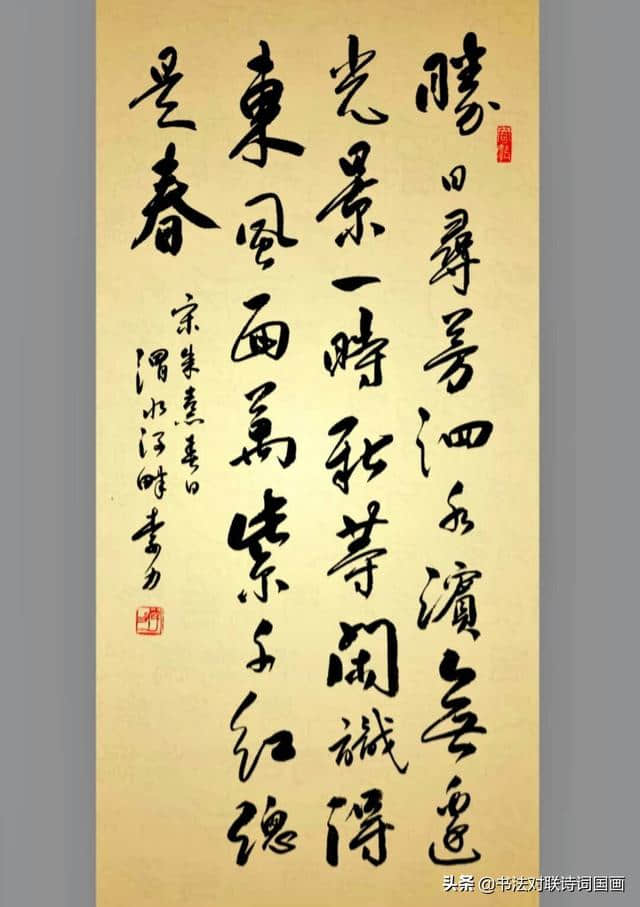 勝日尋芳泗水濱無邊
光景一時新等閑識得
東風面萬紫千紅總
是春
宋朱熹春日
渭水河畔李力
头条 @书法对联诗词国画